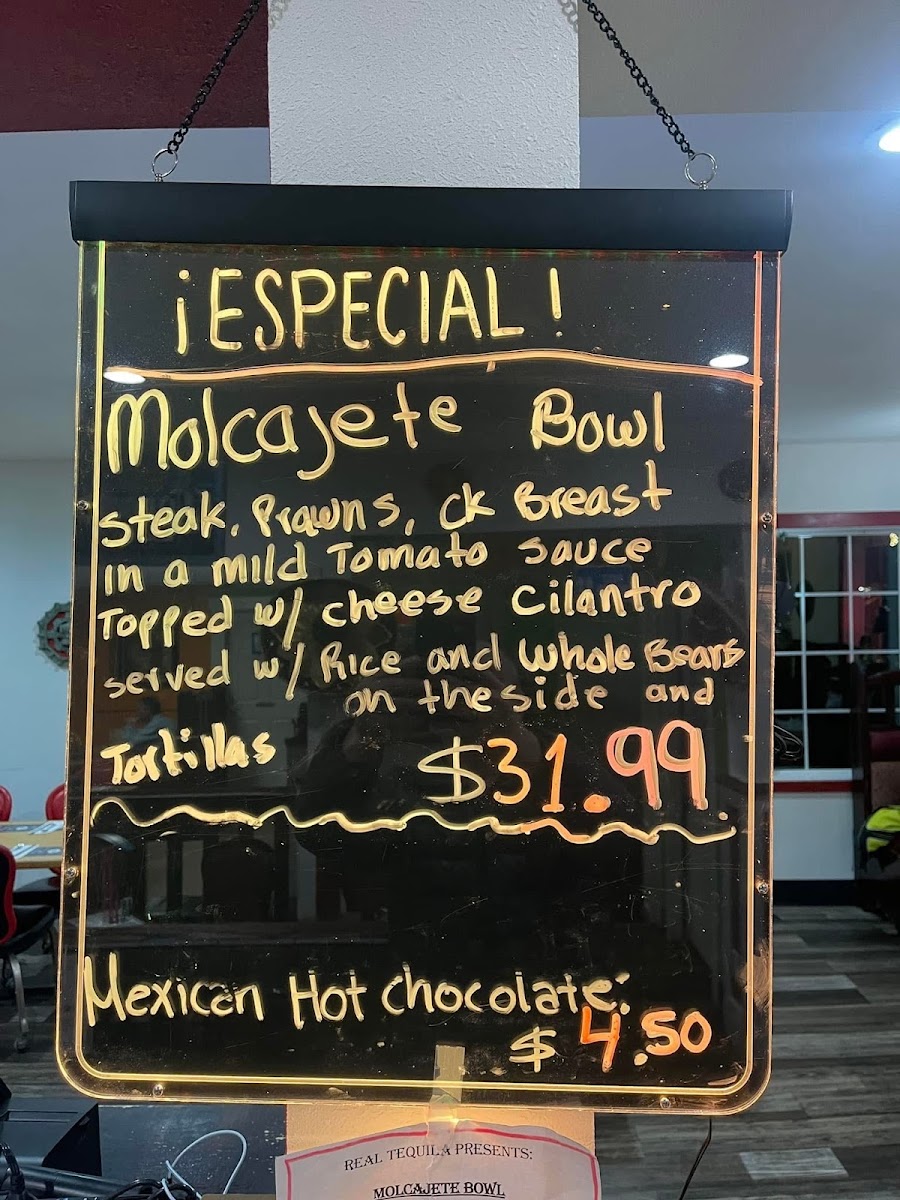 ¡ESPECIAL!
Molcajete Bowl
Steak, Prawns, CK Breast
in a mild Tomato sauce
Topped w/ cheese cilantro
served w/ Rice and whole Beans
on the side and
Tortillas $31.99
Mexican Hot chocolate:
$4.50
REAL TEQUILA PRESENTS:
MOLCAJETE BOWL